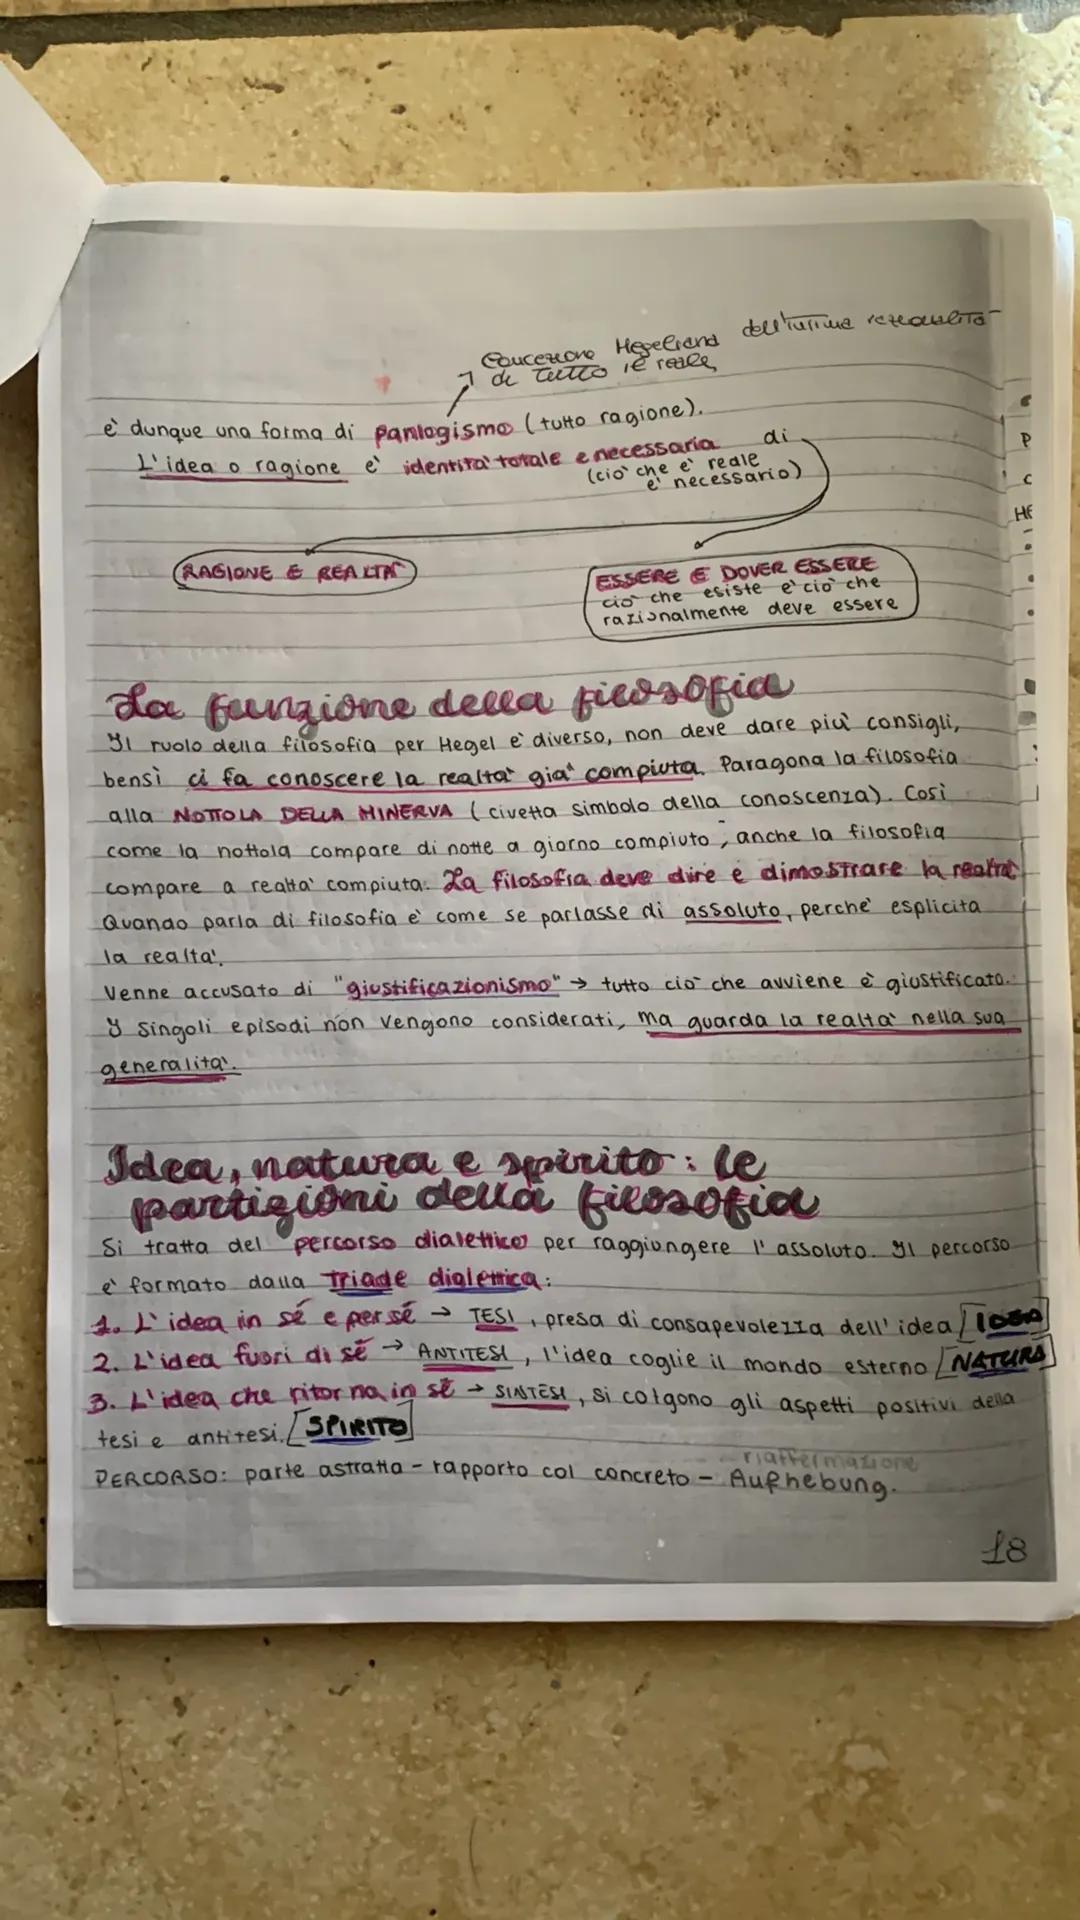 Concezione Hegeliana dell'intima razionalità
di tutto il reale
è dunque una forma di panlogismo (tutto ragione).
L'idea o ragione e' identita' totale e necessaria di
(ciò che e' reale
e' necessario)
RAGIONE E REALTA'
ESSERE E DOVER ESSERE
ciò che esiste e' ciò che
razionalmente deve essere
La funzione della filosofia
Il ruolo della filosofia per Hegel e' diverso, non deve dare piu' consigli,
bensì ci fa conoscere la realta' gia' compiuta. Paragona la filosofia
alla NOTTOLA DELLA MINERVA (civetta simbolo della conoscenza). Così
come la nottola compare di notte a giorno compiuto, anche la filosofia
compare a realta' compiuta. La filosofia deve dire e dimostrare la realta'
Quando parla di filosofia e' come se parlasse di assoluto, perche' esplicita
la realta'.
Venne accusato di "giustificazionismo" → tutto ciò che avviene è giustificato.
I singoli episodi non vengono considerati, ma guarda la realta' nella sua
generalita'.
Idea, natura e spirito: le
partizioni della filosofia
Si tratta del percorso dialettico per raggiungere l'assoluto. Il percorso
e' formato dalla triade dialettica:
1. L'idea in sé e per sé → TESI, presa di consapevolezza dell'idea [IDEA]
2. L'idea fuori di sé → ANTITESI, l'idea coglie il mondo esterno [NATURA]
3. L'idea che ritorna in sé → SINTESI, si colgono gli aspetti positivi della
tesi e antitesi. [SPIRITO]
riaffermazione
PERCORSO: parte astratta - rapporto col concreto - Aufhebung.
18